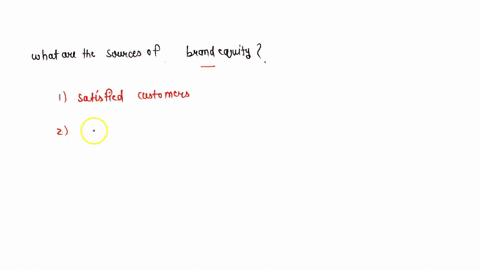 what are the sources of brand equity?.
1) satisfied customers
2)